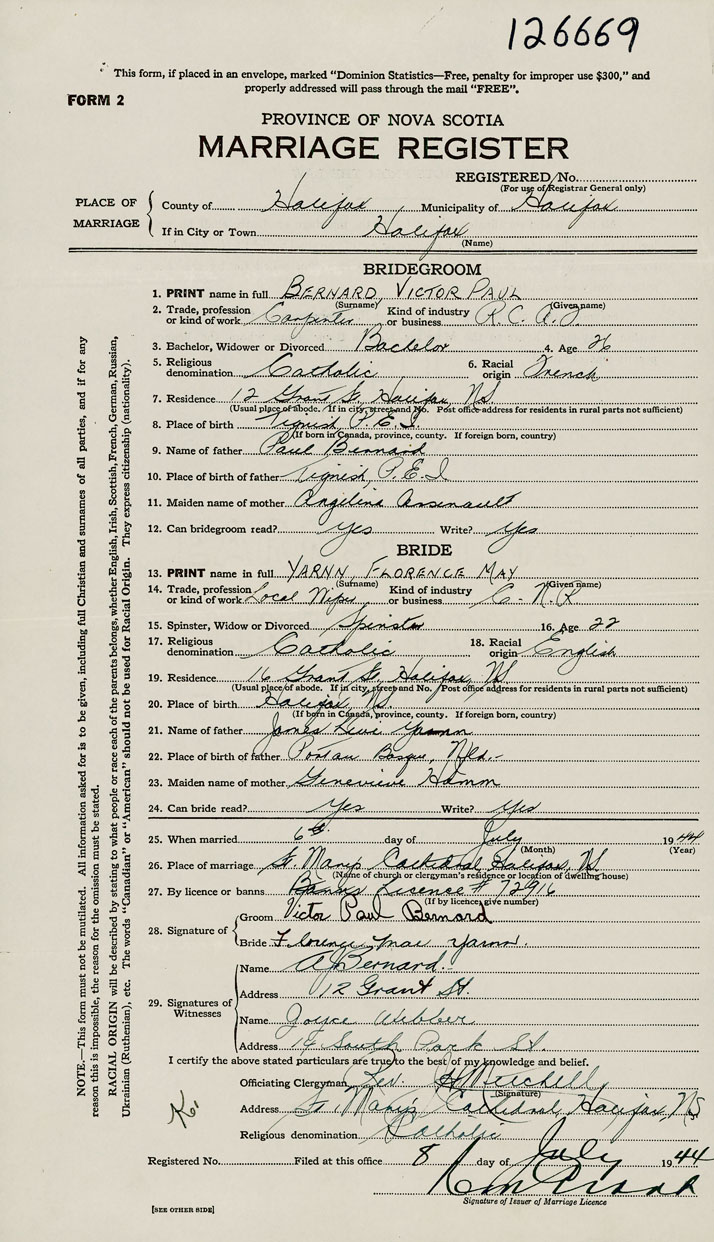 126669
This form, if placed in an envelope, marked "Dominion Statistics—Free, penalty for improper use $300," and
properly addressed will pass through the mail "FREE".
FORM 2
PROVINCE OF NOVA SCOTIA
MARRIAGE REGISTER
REGISTERED No.
(For use of Registrar General only)
PLACE OF MARRIAGE
County of Halifax Municipality of Halifax
If in City or Town Halifax
(Name)
BRIDEGROOM
1. PRINT name in full BERNARD, VICTOR PAUL
(Surname) (Given name)
2. Trade, profession or kind of work Carpenter Kind of industry or business R.C.A.F.
3. Bachelor, Widower or Divorced Bachelor 4. Age 26
5. Religious denomination Catholic 6. Racial origin French
7. Residence 12 Grant St. Halifax, NS
(Usual place of abode. If in city, street and No. Post office address for residents in rural parts not sufficient)
8. Place of birth Tignish, P.E.I.
(If born in Canada, province, county. If foreign born, country)
9. Name of father Paul Bernard
10. Place of birth of father Tignish, P.E.I
11. Maiden name of mother Angelina Arsenault
12. Can bridegroom read? Yes Write? Yes
BRIDE
13. PRINT name in full YARNN, FLORENCE MAY
(Surname) (Given name)
14. Trade, profession or kind of work Local Kind of industry or business C.N.R
15. Spinster, Widow or Divorced Spinster 16. Age 22
17. Religious denomination Catholic 18. Racial origin English
19. Residence 16 Grant St, Halifax, NS
(Usual place of abode. If in city, street and No. Post office address for residents in rural parts not sufficient)
20. Place of birth Halifax, NS.
(If born in Canada, province, county. If foreign born, country)
21. Name of father James Levi Yarnn
22. Place of birth of father Portau Basque, Nfld.-
23. Maiden name of mother Genevieve Hamm
24. Can bride read? Yes Write? Yes
25. When married 6th day of July 1944
(Month) (Year)
26. Place of marriage St. Mary's Cathedral Halifax, NS
(Name of church or clergyman's residence or location of dwelling house)
27. By licence or banns Banns Licence # 72916
(If by licence, give number)
28. Signature of
Groom Victor Paul Bernard
Bride Florence mae yarnn.
29. Signatures of Witnesses
Name A Bernard.
Address 12 Grant St.
Name Joyce Webber
Address South Park St.
I certify the above stated particulars are true to the best of my knowledge and belief.
Officiating Clergyman Rev. Mitchell
(Signature)
Address St Mary's Cathedral, Halifax, NS
Religious denomination Catholic
Registered No. Filed at this office 8 day of July 1944
Signature of Issuer of Marriage Licence
[SEE OTHER SIDE]
NOTE.—This form must not be mutilated. All information asked for is to be given, including full Christian and surnames of all parties, and if for any
reason this is impossible, the reason for the omission must be stated.
RACIAL ORIGIN will be described by stating to what people or race each of the parents belongs, whether English, Irish, Scottish, French, German, Russian,
Ukrainian (Ruthenian), etc. The words "Canadian" or "American" should not be used for Racial Origin. They express citizenship (nationality).